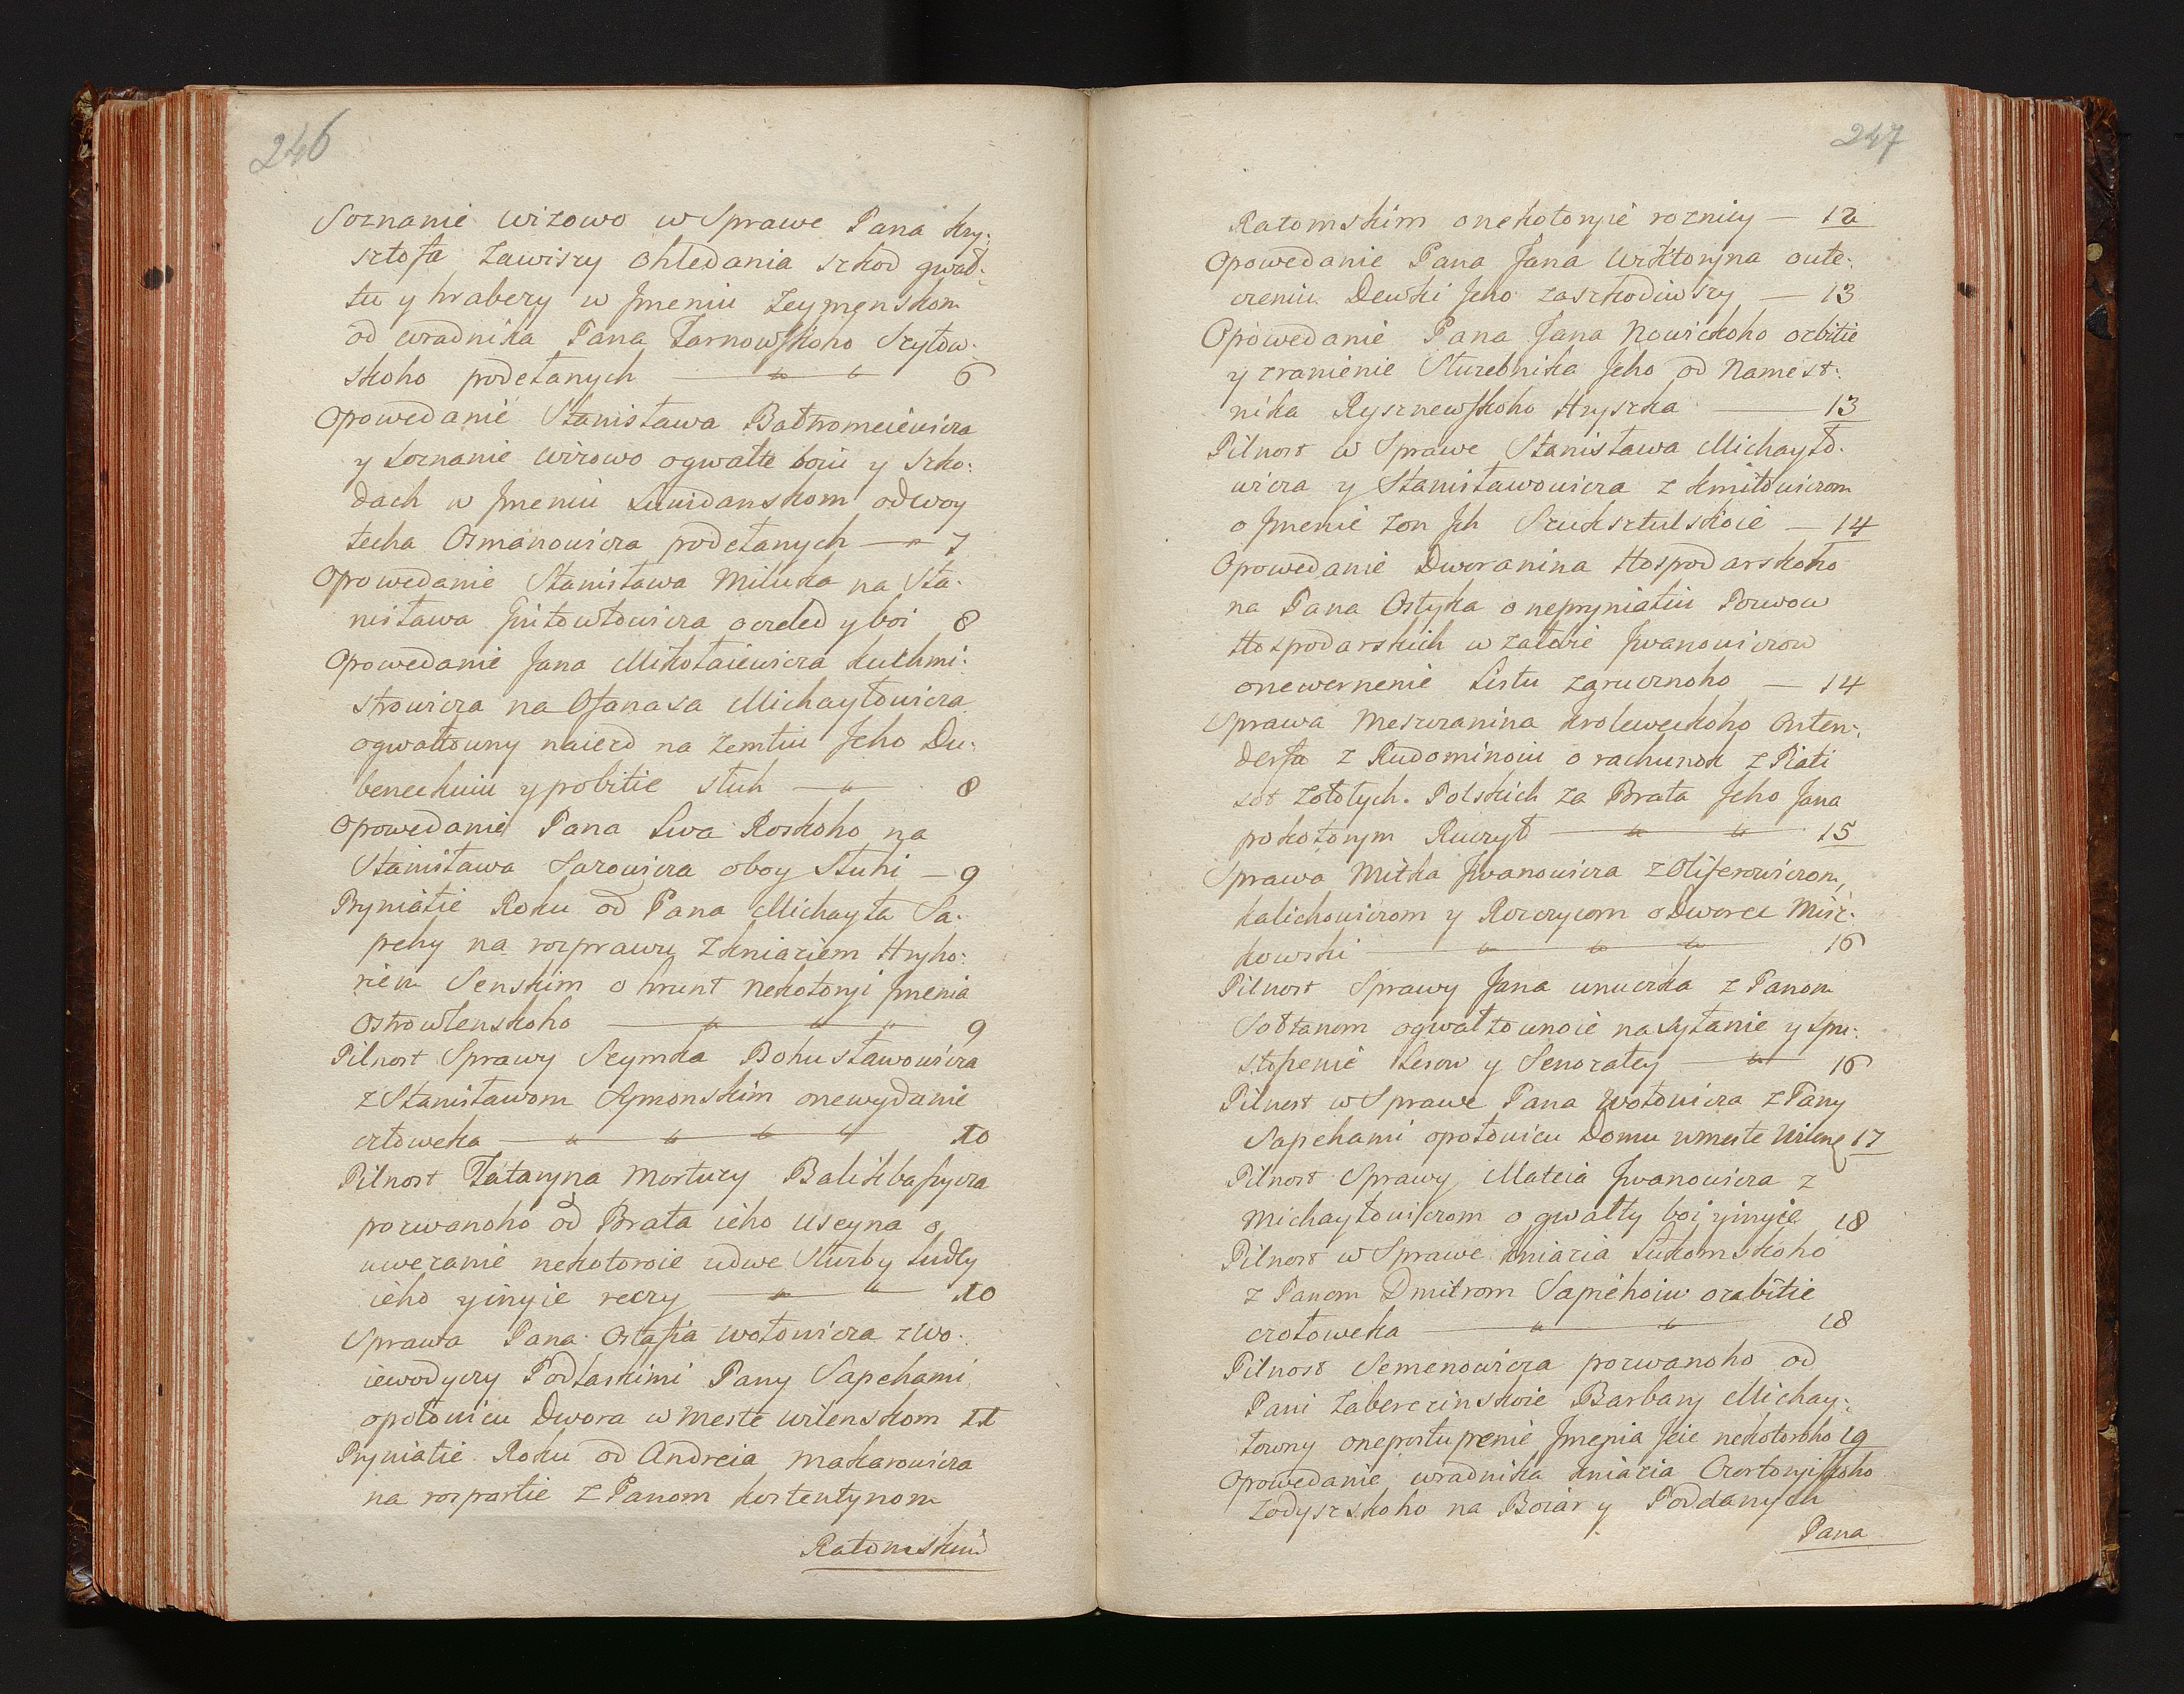 246
Soznanie wizowo w Sprawe Pana Kry:
sztofa Zawiszy Ohledania szkod gwał:
tu y hrabeży w Jmeniu Żeymenskom
od wradnika Pana Tarnowskoho Szyłow:
skoho podełanych — " " 6
Opowedanie Stanisława Bałtromeiewicza
y soznanie wizowo o gwałte boiu y szko:
dach w Jmeniu Suwidanskom od Woy
techa Osmanowicza podełanych — " 7
Opowedanie Stanisława Miluka na Sta:
nisława Gintowtowicza oczeled y boi 8
Opowedanie Jana Mikołaiewicza Kuchmi:
strowicza na Ofanasa Michayłowicza
ogwałtowny naiezd na zemliu Jeho Du:
beneckuiu y pobitie słuh — " 8
Opowedanie Pana Lwa Roskoho na
Stanisława Sazowicza oboy Słuhi — 9
Pryniatie Roku od Pana Michayła Sa:
pehy na rozprawu z Kniaziem Hryho:
riem Senskim o hrunt nekotoryi Jmenia
Ostrowlenskoho — " " " 9
Pilnost Sprawy Seymka Bohusławowicza
z Stanisławom Symonskim onewydanie
człoweka — " " " " 10
Pilnost Tataryna Mortuzy Balikbaszycza
pozwanoho od Brata ieho Useyna o
uwezanie nekotoroie udwe Służby Ludzy
ieho y inyie reczy — " " 10
Sprawa Pana Ostafia Wołowicza z Wo:
iewodyczy Podlaskimi Pany Sapehami
opołowicu Dwora w Meste Wilenskom 11
Pryniatie Roku od Andreia Makarowicza
na rozpartie z Panom Kostentynom
Ratomskim
247
Ratomskim o nekotoryie roznicy — 12
Opowedanie Pana Jana Wiktoryna oute:
czeniu Dewki Jeho zaszkodiwszy — 13
Opowedanie Pana Jana Nowickoho ozbitie
y zranienie Służebnika Jeho od Namest:
nika Rysznewskoho Hryszka — 13
Pilnost w Sprawe Stanisława Michayło:
wicza y Stanisławowicza z Kmitowiczom
o Jmenie żon Jch Szuksztulskoie — 14
Opowedanie Dworanina Hospodarskoho
na Pana Ostyka o nepryniatiu Pozwow
Hospodarskich w żałobie Jwanowiczow
onewernenie Listu zarucznoho — 14
Sprawa Meszczanina Krolewechoho Osten:
derfa z Rudominoiu o rachunok z Piati
sot Zołotych Polskich za Brata Jeho Jana
pokotorym Ruczył — " " 15
Sprawa Mitka Jwanowicza z Oliferowiczom,
Kalichowiczom y Roczycom o Dworec Misz:
kowski — " " " 16
Pilnost Sprawy Jana Unuczka z Panom
Sołtanom ogwałtownoie nasyłanie y spu:
stoszenie Lesow y Senożatey — " 16
Pilnost w Sprawe Pana Wołowicza z Pany
Sapehami opołowicu Domu w meste Wilene 17
Pilnost Sprawy Mateia Jwanowicza z
Michayłowiczom o gwałty boi y inyie 18
Pilnost w Sprawe Kniazia Łukomskoho
z Panom Dmitrom Sapiehoiu ozabitie
czołoweka — " " 18
Pilnost Semenowicza pozwanoho od
Pani Zaberezinskoie Barbary Michay:
łowny onepostupenie Jmenia Jeie nekotoroho 19
Opowedanie wradnika Kniazia Czortoryiskoho
Łodyszskoho na Boiar y Poddanych
Pana